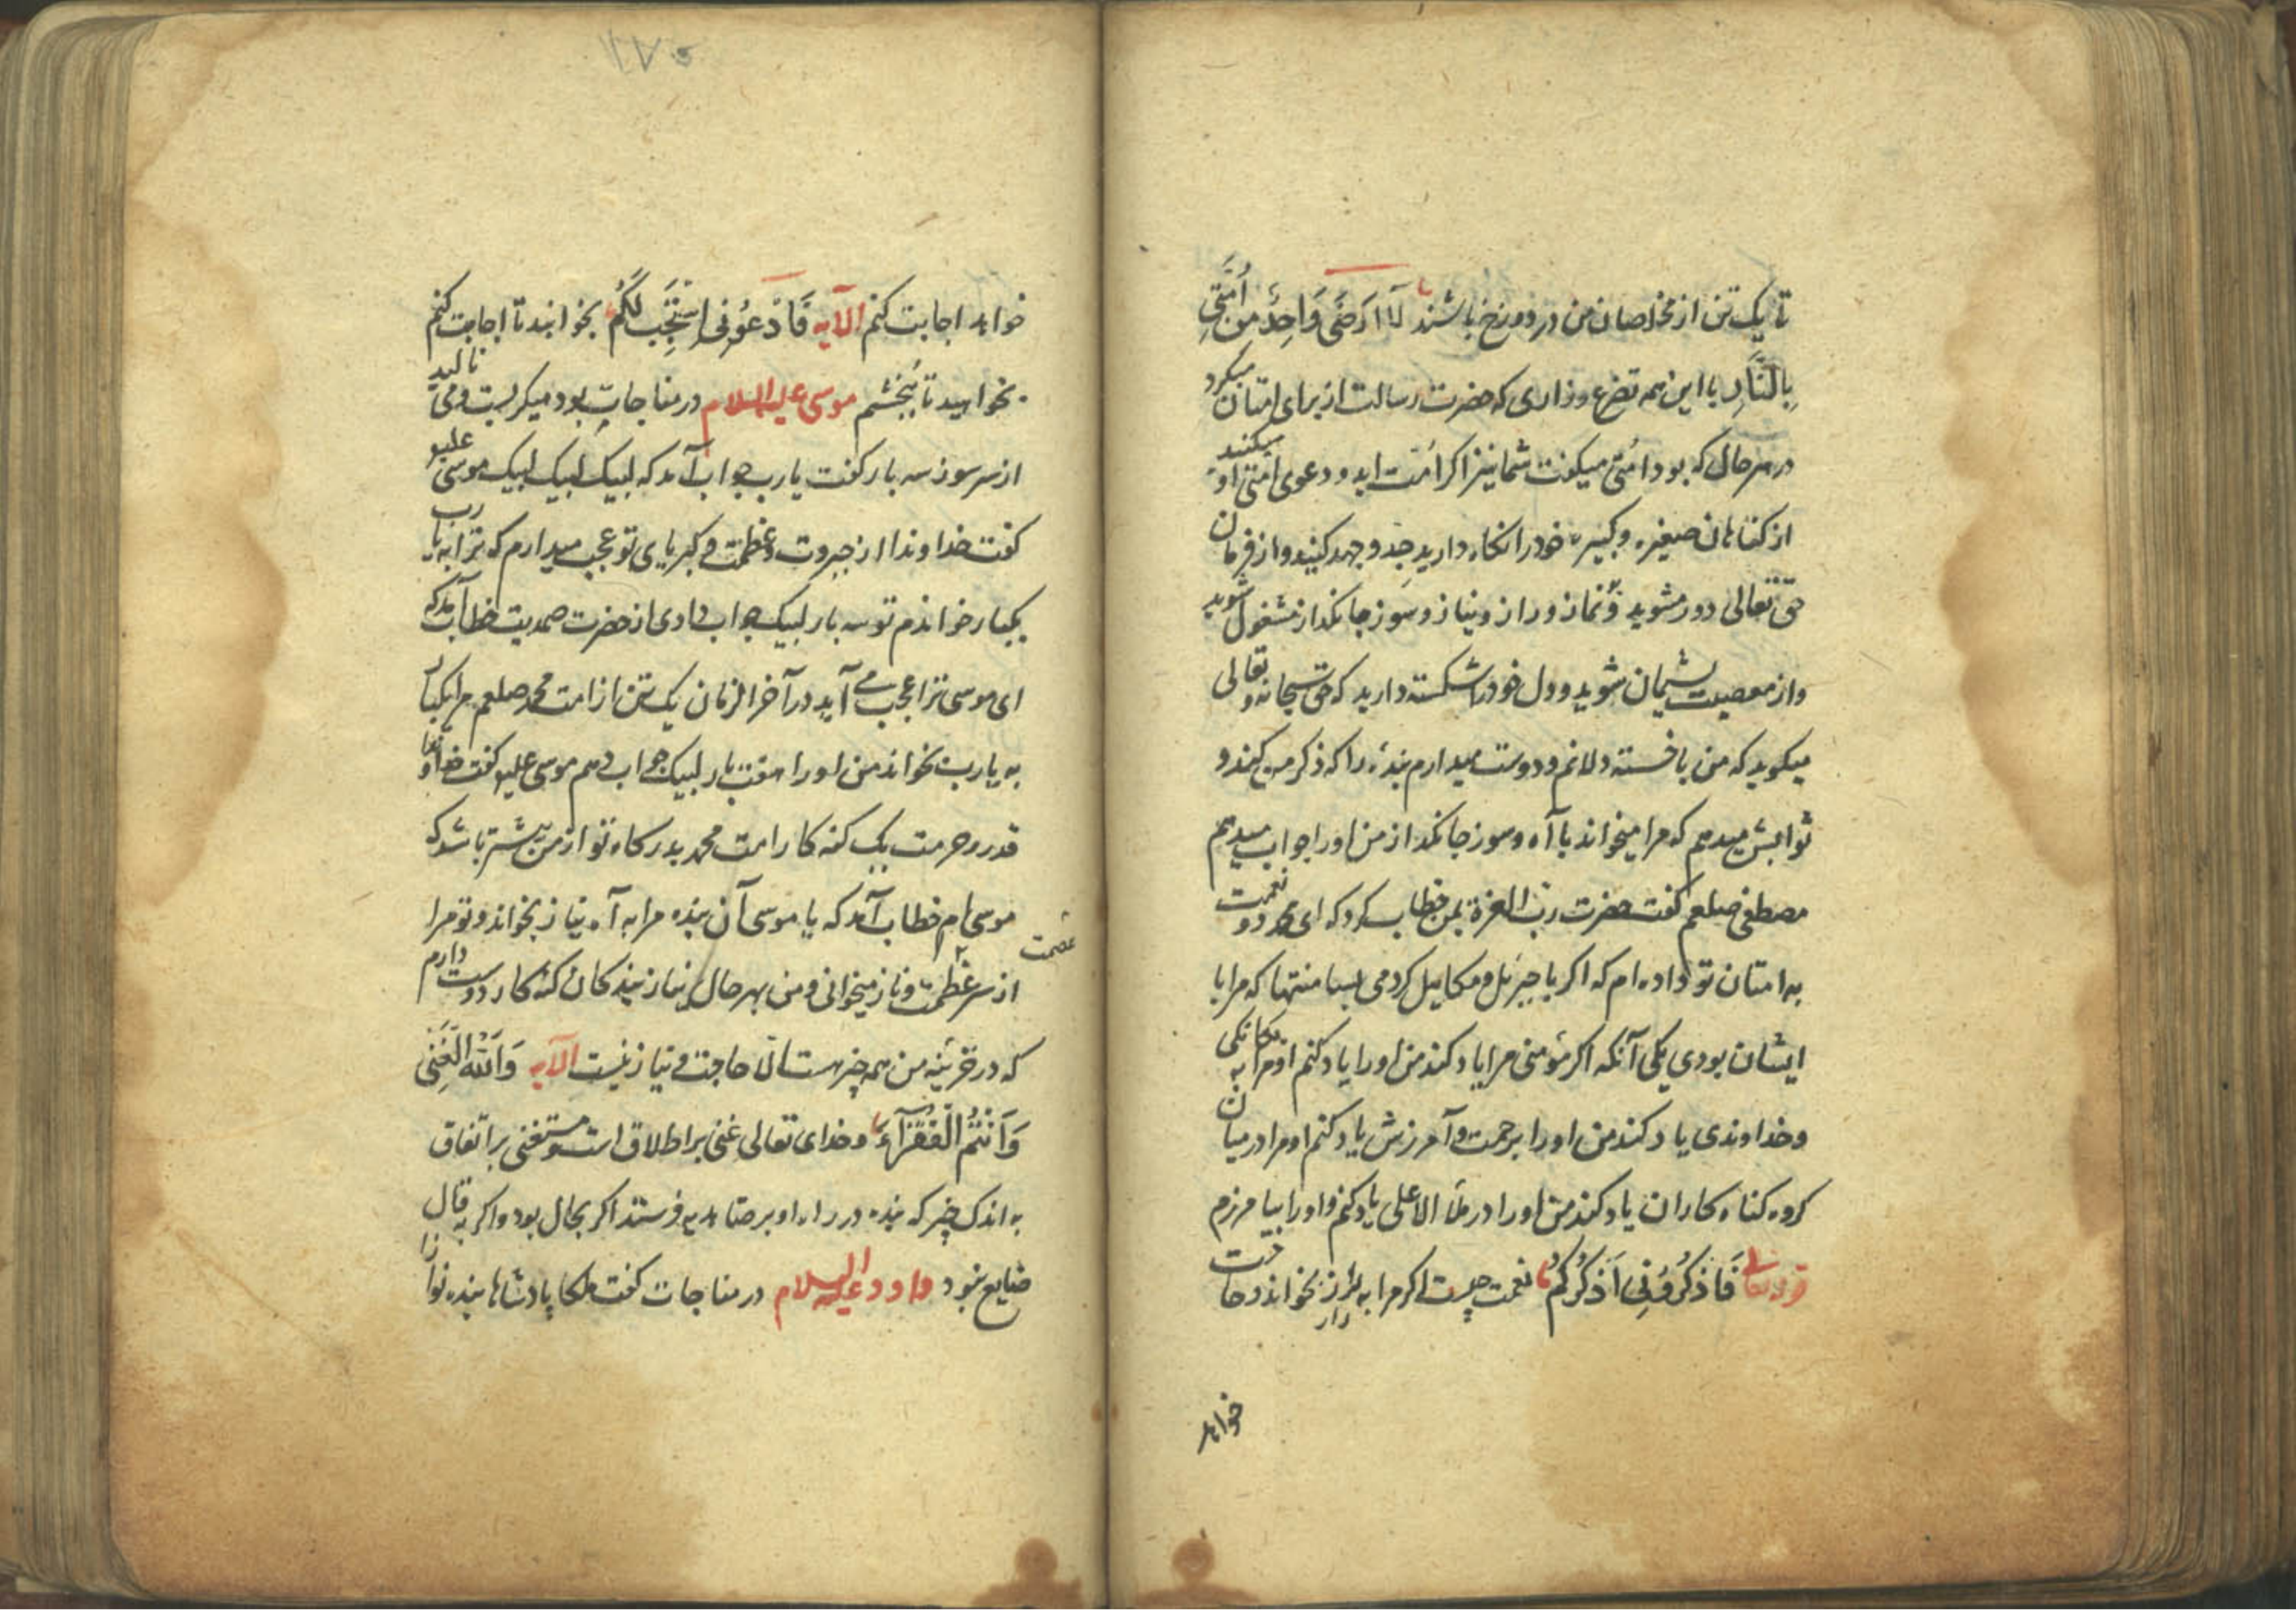 تا یک تن از مخلصان من در دوزخ باشند لَا اَرضَی وَاحِدٌ مِن اُمَّتِی
بِالنَّارِ با این همه تضرع و زاری که حضرت رسالت از برای امتان میکرد
در هر حال که بود امتی میکفت شما نیز اکر امت اید و دعوی امتی او میکنید
از کناهان صغیره و کبیره خود را نکاه دارید جد و جهد کنید و از فرمان
حق تعالی دور مشوید و نماز و راز و نیاز و سوز جانکداز مشغول شوید
و از معصیت پشیمان شوید و دل خود را شکسته دارید که حق سبحانه و تعالی
میکوید که من با خسته دلانم و دوست میدارم بندۀ را که ذکر من کند و
ثوابش میدهم که مرا میخواند با آه و سوز جانکداز من او را جواب میدهم
مصطفی صلعم کفت حضرت رب العزة بمن خطاب کرد که ای محمد دو نعمت
به امتان تو داده ام که اکر با جبرئل و مکاییل کردمی بسا منتها که مرا با
ایشان بودی یکی آنکه اکر مؤمنی مرا یاد کند من او را یاد کنم او مرا به یکانکی
و خداوندی یاد کند من او را برحمت و آمرزش یاد کنم او مرا در میان
کروه کناه کاران یاد کند من او را در ملأ الاعلی یاد کنم و او را بیامرزم
قوله تعالی فَاذکُرُونِی اَذکُرکُم نعمت چیست اکر مرا به راز بخواند و حاجت
خواهد
۱۷۵
خواهد اجابت کنم الآیه فَادعُونِی اَستَجِب لَکُم بخوانید تا اجابت کنم
بخواهید تا ببخشم موسی علیه السلام در مناجات بود میکریست و می نالید
از سر سوز سه بار کفت یا رب جواب آمد که لبیک لبیک لبیک موسی علیه
کفت خداوندا از جبروت و عظمت و کبریای تو عجب میدارم که ترا به یا رب
یکبار خواندم تو سه بار لبیک جواب دادی از حضرت صمدیت خطاب آمد که
ای موسی ترا عجب می آید در آخر الزمان یک تن از امت محمد صلعم مرا یکبار
به یا رب بخواند من او را هفت بار لبیک جواب دهم موسی علیه کفت خداوندا
قدر و حرمت یک کنه کار امت محمد بدرکاه تو از من بیشتر باشد که
موسی ام خطاب آمد که یا موسی آن بنده مرا به آه نیاز بخواند و تو مرا
عصمت
از سر عظمت و ناز میخوانی و من بهر حال نیاز بندکان کنه کار دوست دارم
که در خزینه من همه چیز هست الا حاجت و نیاز نیست الآیه وَاللّٰه الغَنِی
وَاَنتُمُ الفُقَرَآء و خدای تعالی غنی بر اطلاق است و مستغنی بر اتفاق
به اندک چیز که بنده در راه او بر ضا بفرستد اکر بحال بود و اکر به قال
ضایع نبود داود علیه السلام در مناجات کفت ملکا پادشاها بنده نوازا